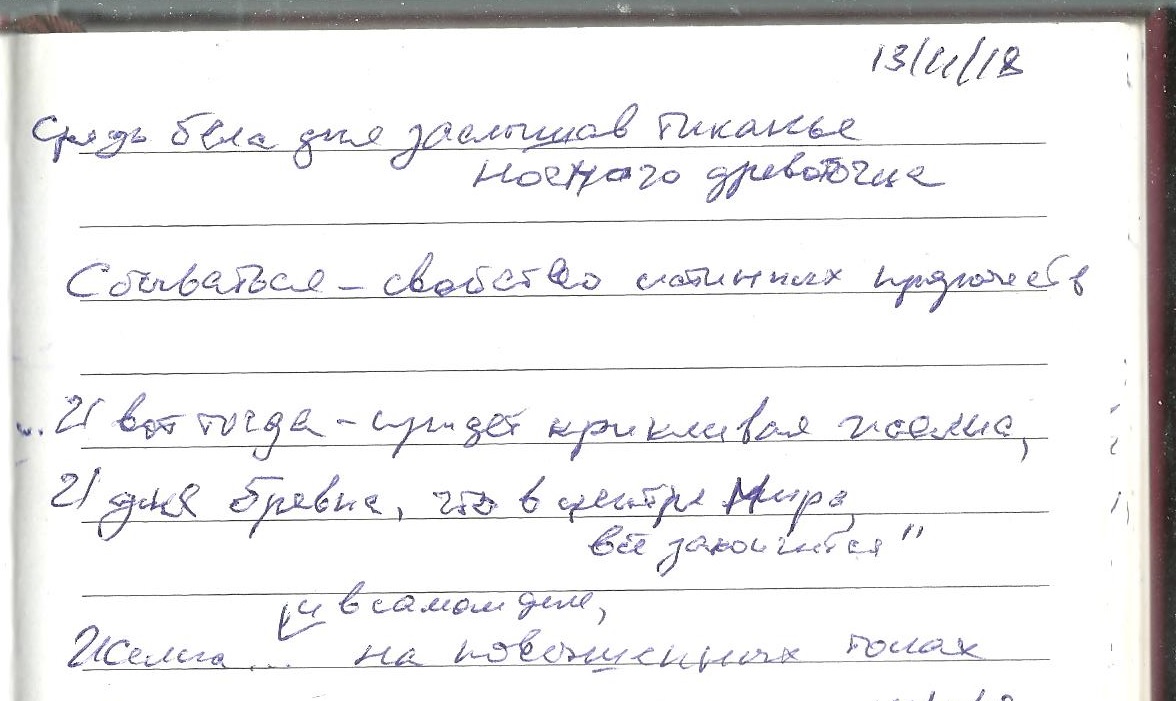 13/II/18
Средь бела дня заслышав тиканье
ночного древоточца
Сбываться – свойство истинных пророчеств
„. И вот тогда – придет крикливая желна,
И для бревна, что в центре Мира,
всё закончится"
и в самом деле,
Желна ... на повышенных тонах